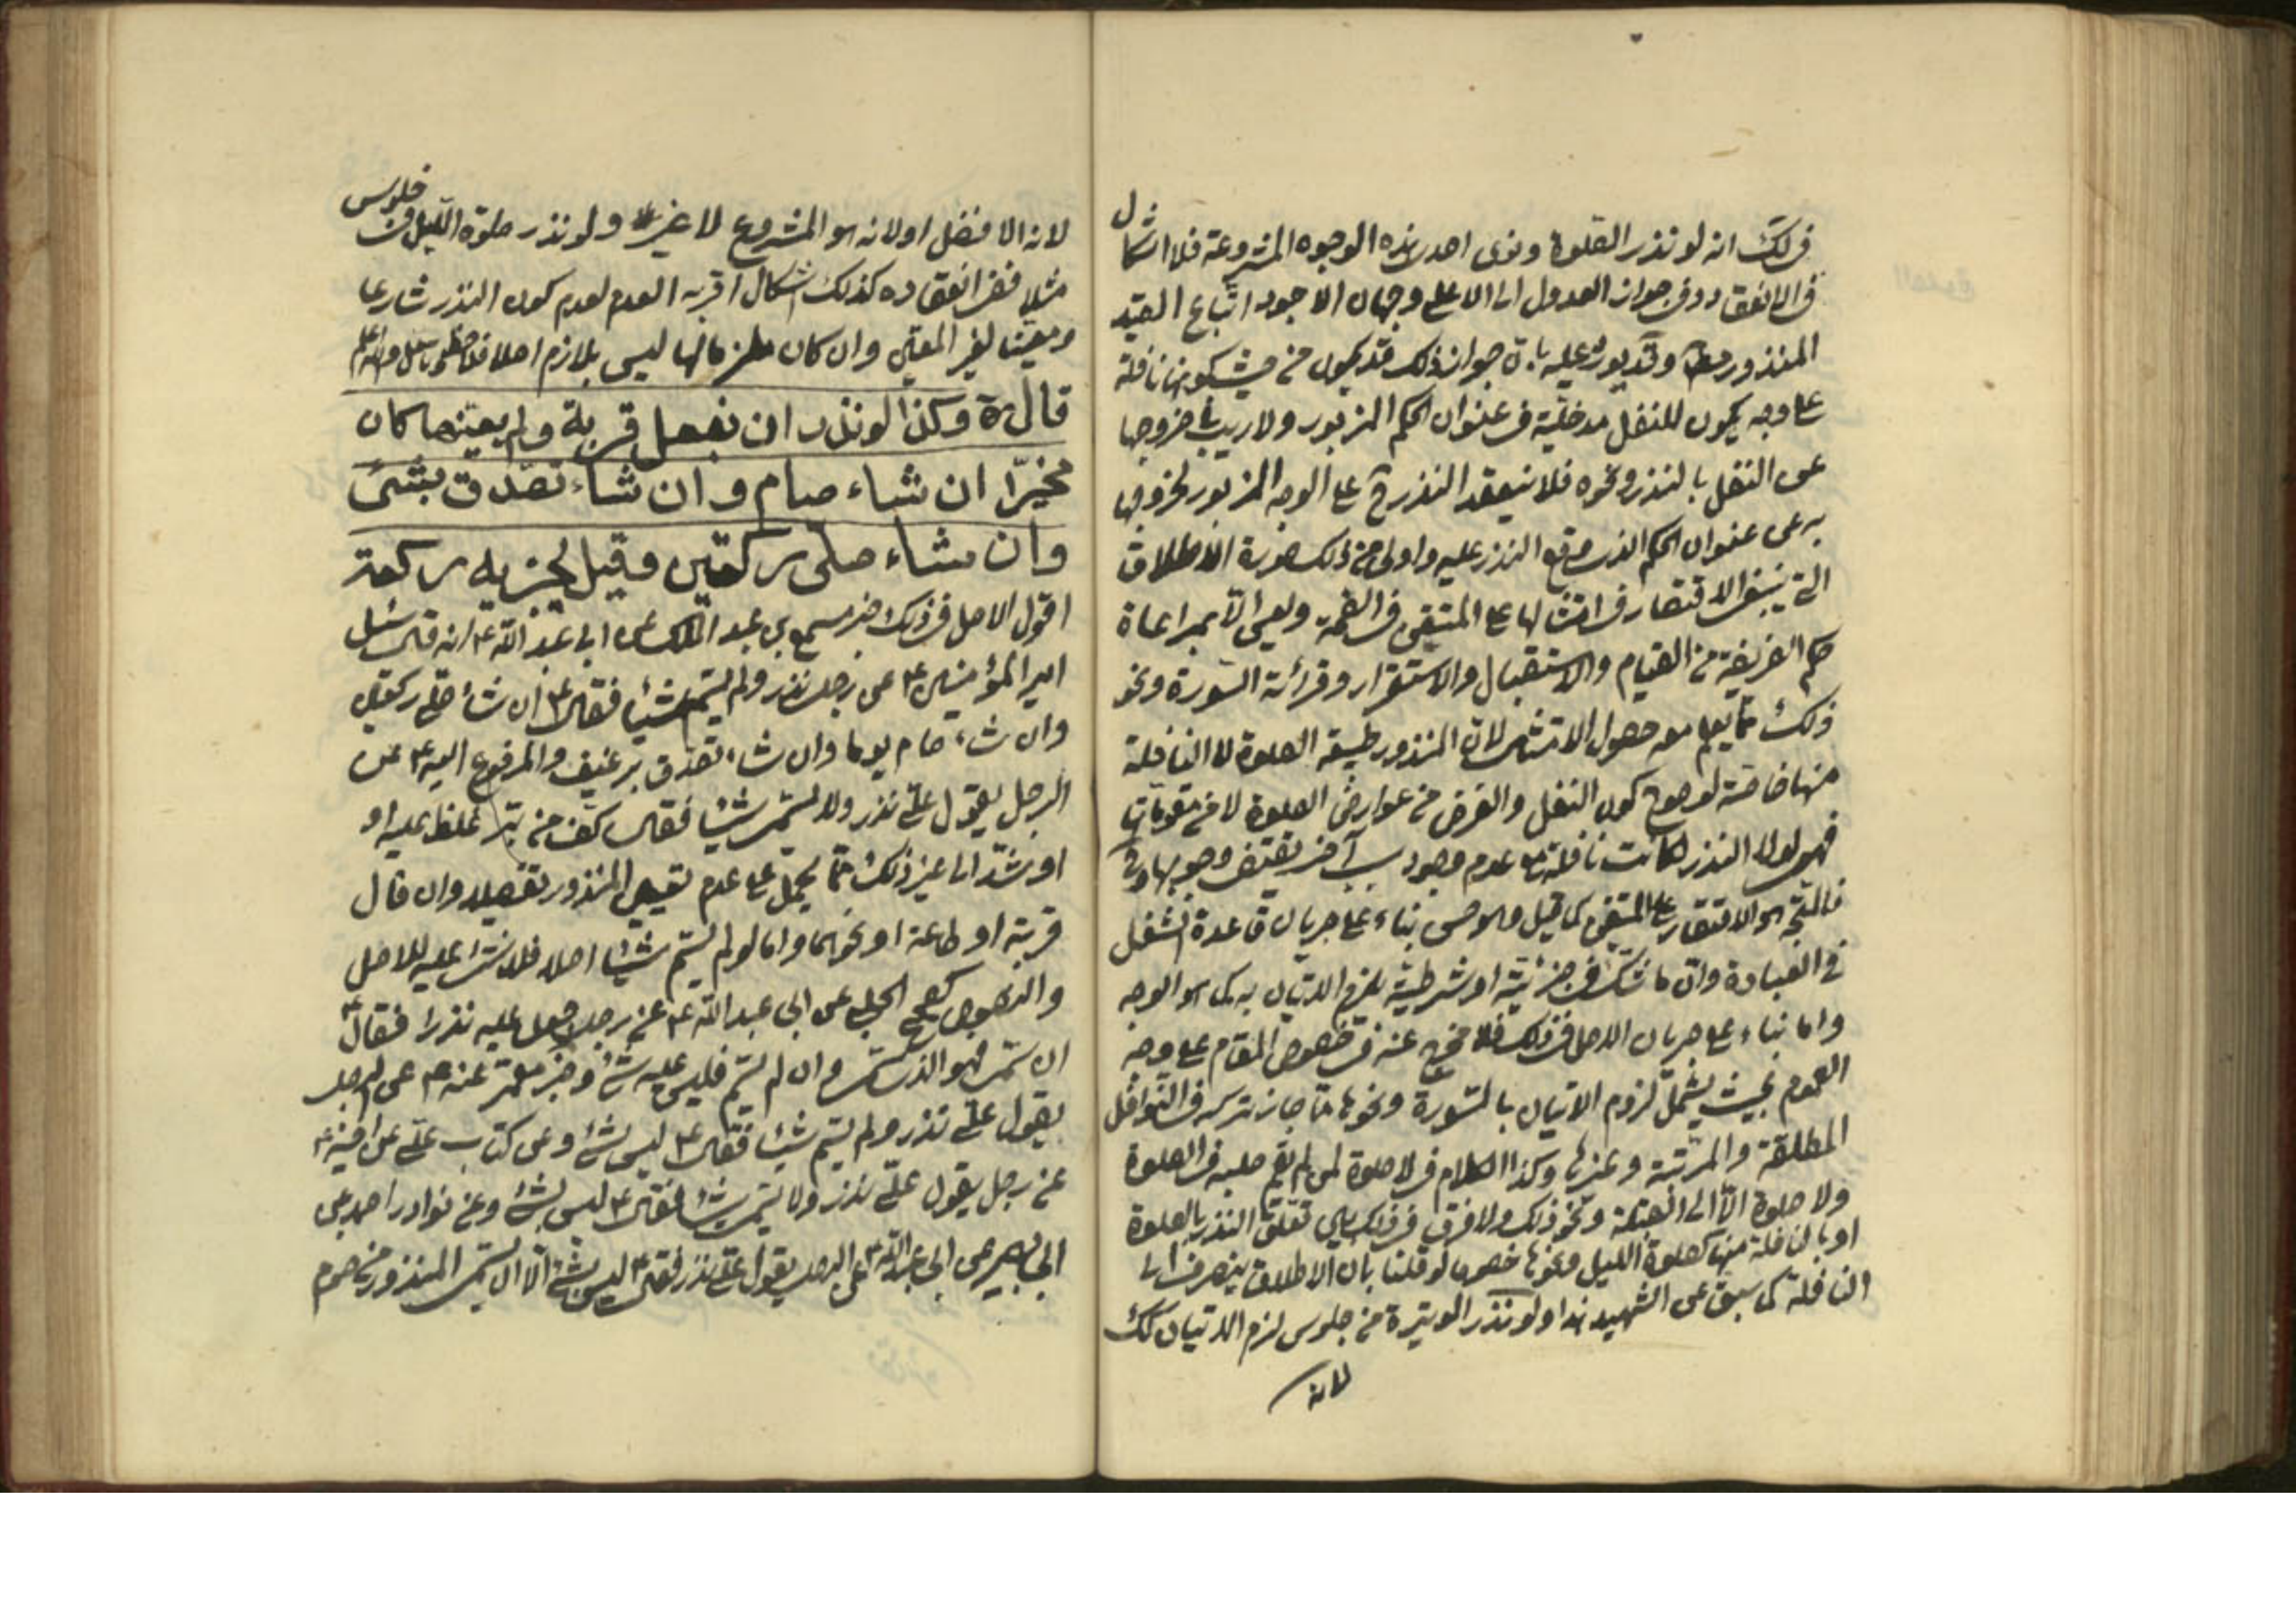 ذلك انه لو نذر الصلوة ونوى احدى هذه الوجوه المشروعة فلا اشكال
فى الانعقاد وفى جواز العدول الى الاعلى وجهان الاجود اتباع القيد
المنذور وقد يورد عليه بان جواز ذلك قد يكون من حيث كونها نافلة
على وجه يكون للنفل مدخلية فى عنوان الحكم المزبور ولا ريب فى خروجها
عن النفل بالنذر ونحوه فلا ينعقد النذر ح على الوجه المزبور لخروجها
به عن عنوان الحكم الذى وقع النذر عليه واولى من ذلك صورة الاطلاق
التى ينبغى الاقتصار فى امتثالها على المتيقن فى الصحة وليس الا بمراعاة
حكم الفريضة من القيام والاستقبال والاستقرار وقرائة السورة ونحو
ذلك مما يعلم معه حصول الامتثال لان المنذور طبيعة الصلوة لا النافلة
منها خاصة لوضوح كون النفل والفرض من عوارض الصلوة لا من مقوماتها
فهو لولا النذر لكانت نافلة مع عدم وجود سبب آخر يقتضى وجوبها و ح
فالمتجه هو الاقتصار على المتيقن كما قيل وهو حسن بناء على جريان قاعدة الشغل
فى العبادة وان ما شك فى جزئيته او شرطيته يلزم الاتيان به كما هو الوجه
واما بناء على جريان الاصل فى ذلك فلا مخرج عنه فى خصوص المقام على وجه
العموم بحيث يشمل لزوم الاتيان بالسورة ونحوها مما جاز تركه فى النوافل
المطلقة والمرتبة وغيرها وكذا الكلام فى لا صلوة لمن لم يقم صلبه فى الصلوة
ولا صلوة الا الى القبلة ونحو ذلك ولا فرق فى ذلك بين تعلق النذر بالصلوة
او بالنافلة منها كصلوة الليل ونحوها خصوصا لو قلنا بان الاطلاق ينصرف الى
النافلة كما سبق عن الشهيد هذا ولو نذر الوتيرة من جلوس لزم الاتيان كك
لانه
لانه الافضل او لانه هو المشروع لا غير ولو نذر صلوة الليل من جلوس
مثلا ففى انعقاده كذلك اشكال اقربه العدم لعدم كون النذر شارعا
ومعينا لغير المعين وان كان ليس بلازم اصلا والله اعلم
قال ره وكذا لو نذر ان يفعل قربة ولم يعينها كان
مخيرا ان شاء صام وان شاء تصدق بشئ
وان شاء صلى ركعتين وقيل يجزيه ركعة
اقول الاصل فى ذلك خبر مسمع بن عبد الملك عن ابى عبد الله ع انه قال سئل
امير المؤمنين ع عن رجل نذر ولم يسم شيئا فقال ع ان شاء صلى ركعتين
وان شاء صام يوما وان شاء تصدق برغيف والمرفوع اليه ع عن
الرجل يقول على نذر ولا يسمى شيئا فقال كف من بر غلظ عليه او
او شدد الى غير ذلك مما يحمل على عدم تعيين المنذور تفصيلا وان قال
قربة او طاعة او نحوهما واما لو لم يسم شيئا اصلا فلا شئ عليه للاصل
والنصوص كصحيح الحلبى عن ابى عبد الله ع عن رجل جعل عليه نذرا فقال ع
ان سمى فهو الذى سمى وان لم يسم فليس عليه شئ وخبر معمر عنه ع عن الرجل
يقول على نذر ولم يسم شيئا فقال ع ليس بشئ وعن كتاب على عن اخيه ع
عن رجل يقول على نذر ولا يسمى شيئا فقال ع ليس بشئ وعن نوادر احمد عن
ابى بصير عن ابى عبد الله ع عن الرجل يقول على نذر فقال ع ليس بشئ الا ان يسمى المنذور من صوم